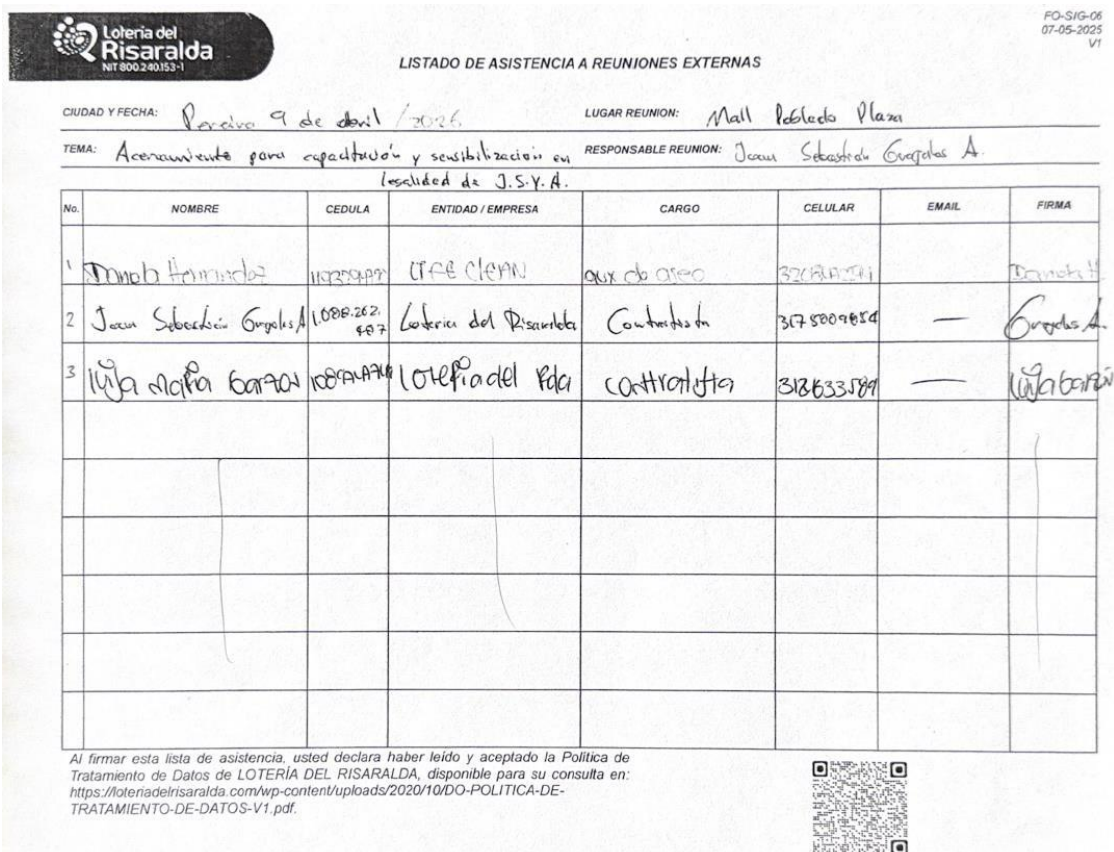 Lotería del
Risaralda
NIT 800.240.153-1
FO-SIG-06
07-05-2025
V1
LISTADO DE ASISTENCIA A REUNIONES EXTERNAS
CIUDAD Y FECHA: Pereira 9 de abril / 2026 LUGAR REUNION: Mall Poblado Plaza
TEMA: Acercamiento para capacitación y sensibilización en RESPONSABLE REUNION: Joan Sebastián A.
legalidad de J.S.Y.A.
No. NOMBRE CEDULA ENTIDAD / EMPRESA CARGO CELULAR EMAIL FIRMA
1 Daniela Hernandez LIFE CLEAN aux de aseo Daniela H
2 Joan Sebastián A Lotería del Risaralda Contratista — A.
3 María Garzón Lotería del Rda contratista — Garzón
Al firmar esta lista de asistencia, usted declara haber leído y aceptado la Política de
Tratamiento de Datos de LOTERÍA DEL RISARALDA, disponible para su consulta en:
https://loteriadelrisaralda.com/wp-content/uploads/2020/10/DO-POLITICA-DE-
TRATAMIENTO-DE-DATOS-V1.pdf.